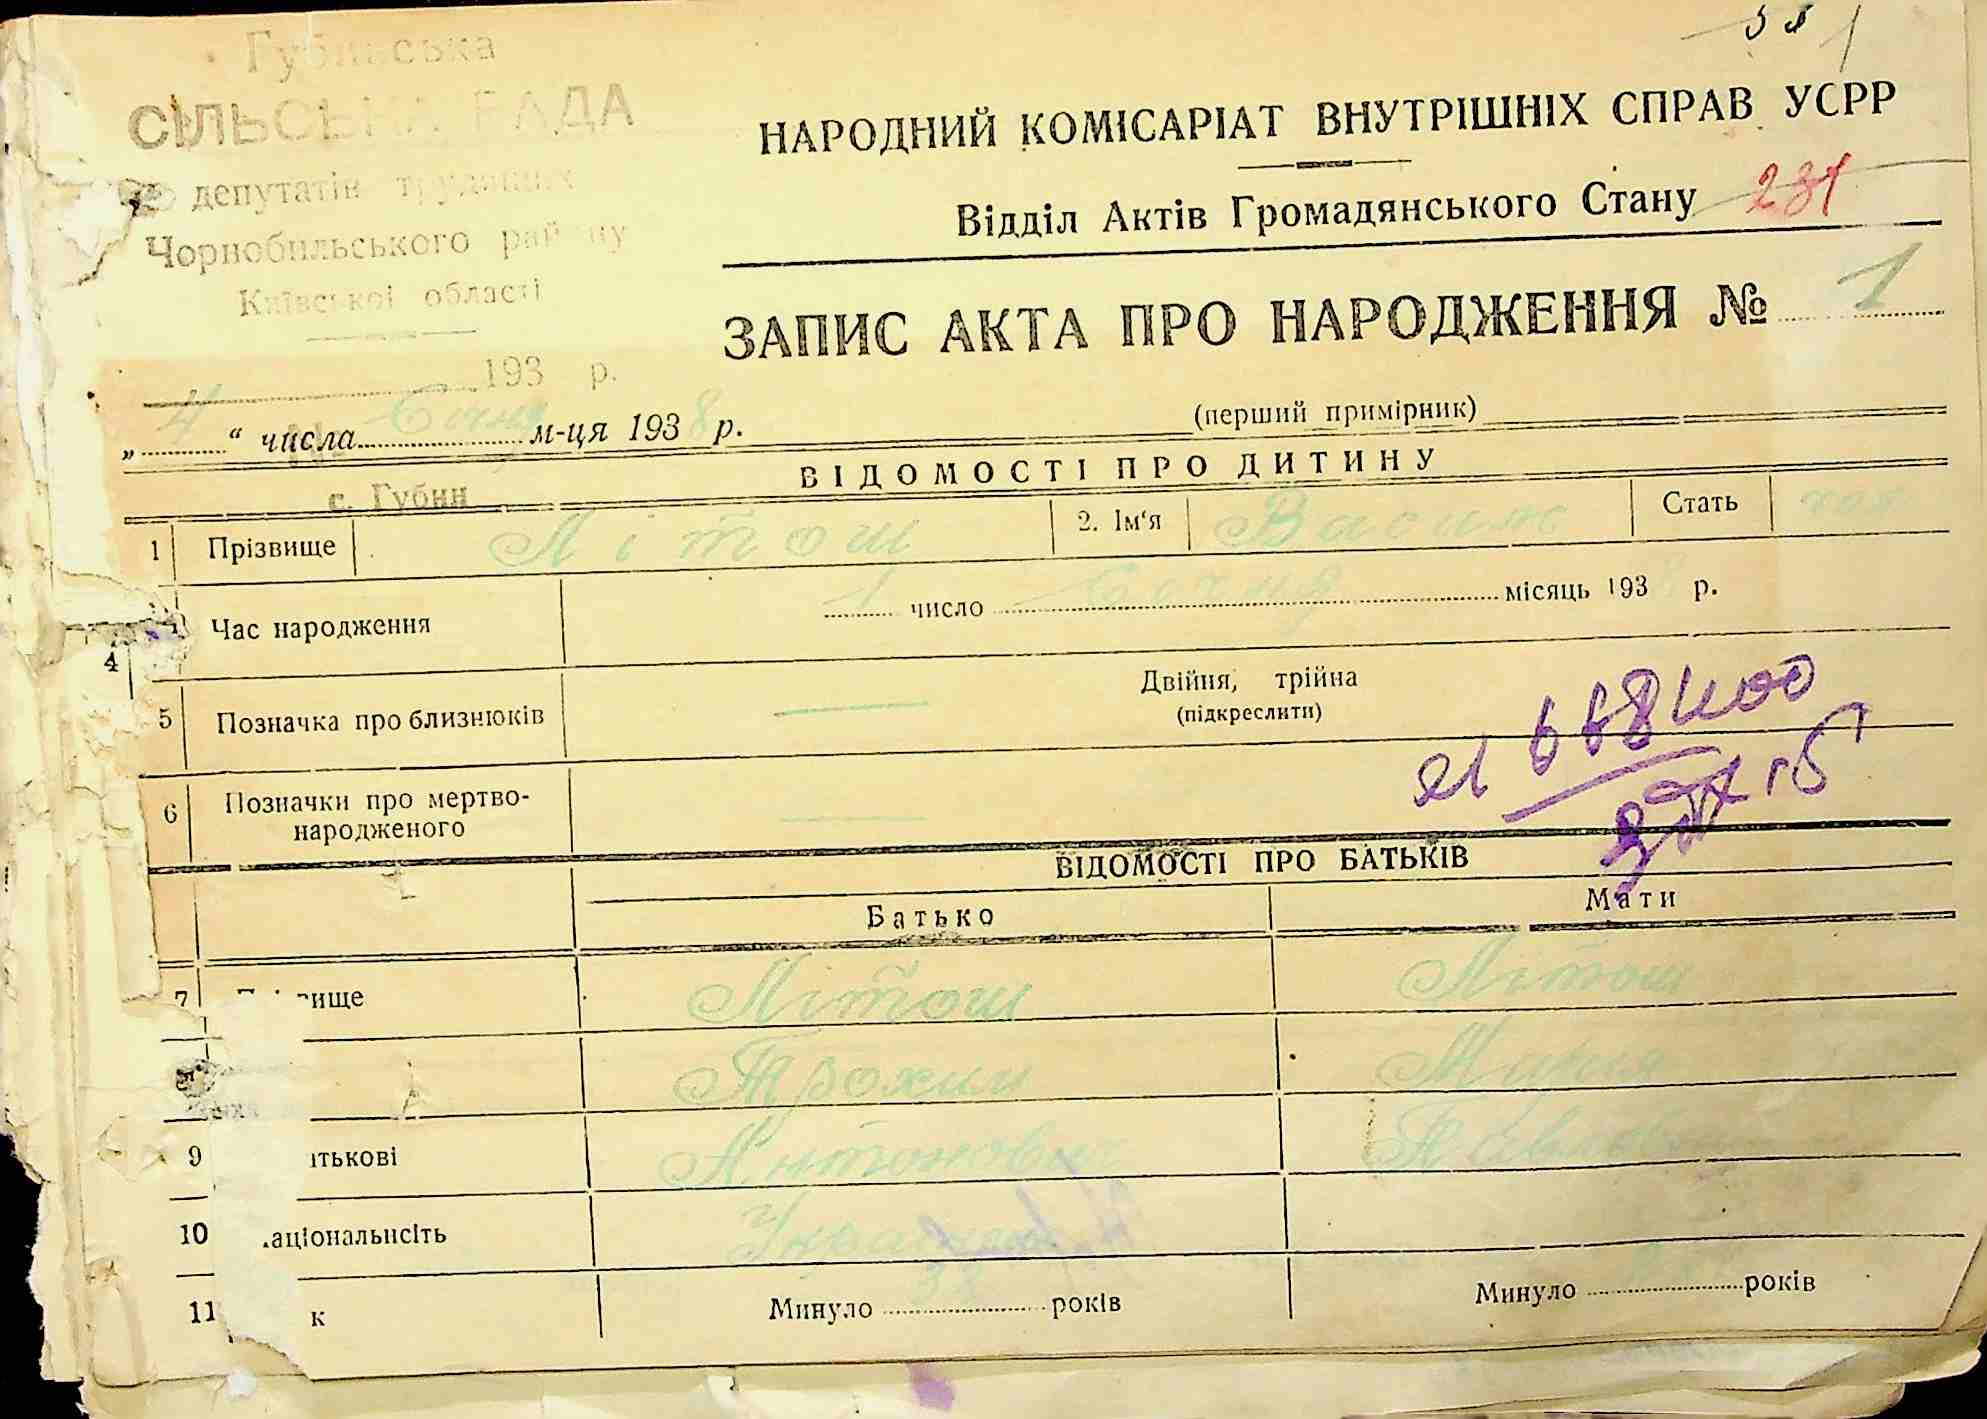 Губинська
СІЛЬСЬКА РАДА
депутатів трудящих
Чорнобильського району
Київської області
193 р.
НАРОДНИЙ КОМІСАРІАТ ВНУТРІШНІХ СПРАВ УСРР
Відділ Актів Громадянського Стану 231
ЗАПИС АКТА ПРО НАРОДЖЕННЯ № 1
„ 4 “ числа Січня м-ця 1938 р.
(перший примірник)
с. Губин
ВІДОМОСТІ ПРО ДИТИНУ
1 Прізвище Літош 2. Ім'я Василь Стать чол
4 Час народження 1 число Січня місяць 1938 р.
5 Позначка про близнюків Двійня, трійна
(підкреслити)
6 Позначки про мертво-
народженого
ВІДОМОСТІ ПРО БАТЬКІВ
Батько Мати
7 ище Літош Літош
Трохим Мария
9 атькові Антонович
10 аціональність Українець
11 к Минуло 38 років Минуло років